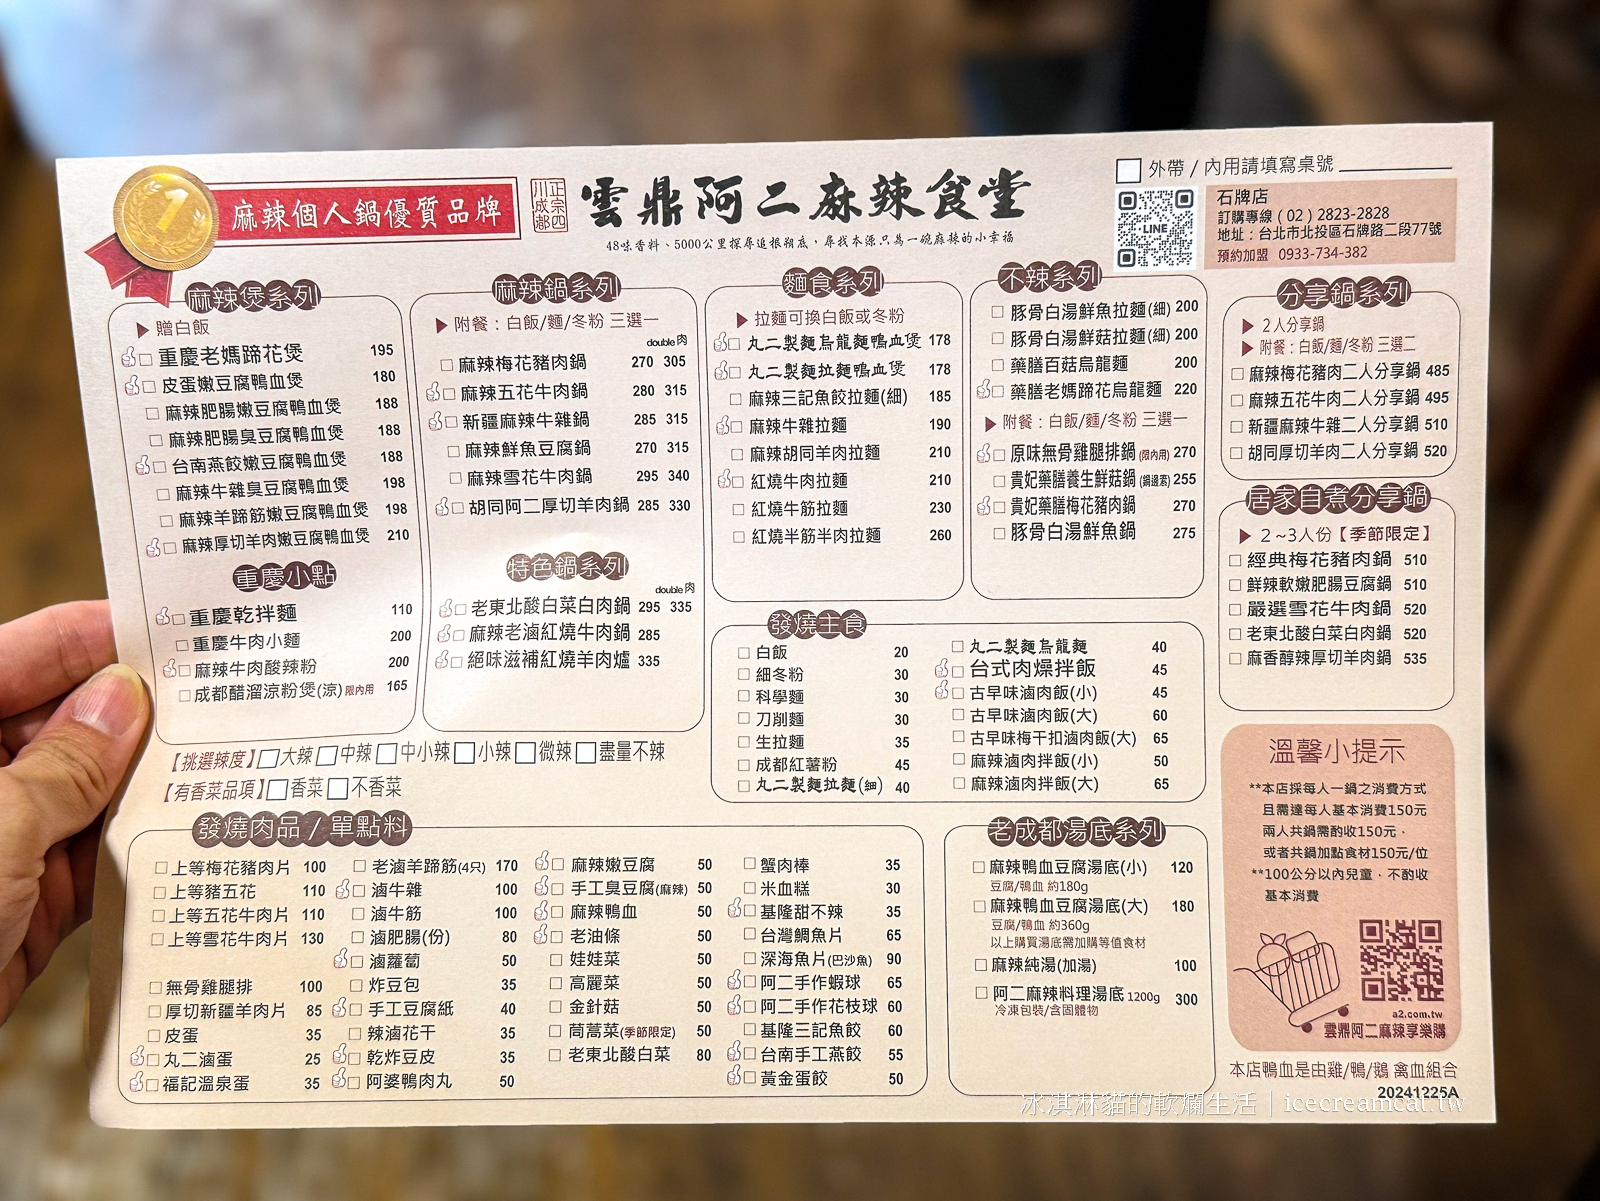 1
麻辣個人鍋優質品牌
正宗四川成都
雲鼎阿二麻辣食堂
48味香料、5000公里探尋追根朔底，尋找本源只為一碗麻辣的小幸福
外帶 / 內用請填寫桌號
LINE
石牌店
訂購專線 ( 02 ) 2823-2828
地址：台北市北投區石牌路二段77號
預約加盟 0933-734-382
麻辣煲系列
▶ 贈白飯
重慶老媽蹄花煲 195
皮蛋嫩豆腐鴨血煲 180
麻辣肥腸嫩豆腐鴨血煲 188
麻辣肥腸臭豆腐鴨血煲 188
台南燕餃嫩豆腐鴨血煲 188
麻辣牛雜臭豆腐鴨血煲 198
麻辣羊蹄筋嫩豆腐鴨血煲 198
麻辣厚切羊肉嫩豆腐鴨血煲 210
重慶小點
重慶乾拌麵 110
重慶牛肉小麵 200
麻辣牛肉酸辣粉 200
成都醋溜涼粉煲(涼)限內用 165
麻辣鍋系列
▶ 附餐：白飯/麵/冬粉 三選一
double肉
麻辣梅花豬肉鍋 270 305
麻辣五花牛肉鍋 280 315
新疆麻辣牛雜鍋 285 315
麻辣鮮魚豆腐鍋 270 315
麻辣雪花牛肉鍋 295 340
胡同阿二厚切羊肉鍋 285 330
特色鍋系列
double肉
老東北酸白菜白肉鍋 295 335
麻辣老滷紅燒牛肉鍋 285
絕味滋補紅燒羊肉爐 335
麵食系列
▶ 拉麵可換白飯或冬粉
丸二製麵烏龍麵鴨血煲 178
丸二製麵拉麵鴨血煲 178
麻辣三記魚餃拉麵(細) 185
麻辣牛雜拉麵 190
麻辣胡同羊肉拉麵 210
紅燒牛肉拉麵 210
紅燒牛筋拉麵 230
紅燒半筋半肉拉麵 260
不辣系列
豚骨白湯鮮魚拉麵(細) 200
豚骨白湯鮮菇拉麵(細) 200
藥膳百菇烏龍麵 200
藥膳老媽蹄花烏龍麵 220
▶ 附餐：白飯/麵/冬粉 三選一
原味無骨雞腿排鍋(限內用) 270
貴妃藥膳養生鮮菇鍋(鍋邊素) 255
貴妃藥膳梅花豬肉鍋 270
豚骨白湯鮮魚鍋 275
分享鍋系列
▶ 2人分享鍋
▶ 附餐：白飯/麵/冬粉 三選二
麻辣梅花豬肉二人分享鍋 485
麻辣五花牛肉二人分享鍋 495
新疆麻辣牛雜二人分享鍋 510
胡同厚切羊肉二人分享鍋 520
居家自煮分享鍋
▶ 2～3人份【季節限定】
經典梅花豬肉鍋 510
鮮辣軟嫩肥腸豆腐鍋 510
嚴選雪花牛肉鍋 520
老東北酸白菜白肉鍋 520
麻香醇辣厚切羊肉鍋 535
發燒主食
白飯 20
細冬粉 30
科學麵 30
刀削麵 30
生拉麵 35
成都紅薯粉 45
丸二製麵拉麵(細) 40
丸二製麵烏龍麵 40
台式肉燥拌飯 45
古早味滷肉飯(小) 45
古早味滷肉飯(大) 60
古早味梅干扣滷肉飯(大) 65
麻辣滷肉拌飯(小) 50
麻辣滷肉拌飯(大) 65
【挑選辣度】 大辣 中辣 中小辣 小辣 微辣 盡量不辣
【有香菜品項】 香菜 不香菜
發燒肉品 / 單點料
上等梅花豬肉片 100
上等豬五花 110
上等五花牛肉片 110
上等雪花牛肉片 130
無骨雞腿排 100
厚切新疆羊肉片 85
皮蛋 35
丸二滷蛋 25
福記溫泉蛋 35
老滷羊蹄筋(4只) 170
滷牛雜 100
滷牛筋 100
滷肥腸(份) 80
滷蘿蔔 50
炸豆包 35
手工豆腐紙 40
辣滷花干 35
乾炸豆皮 35
阿婆鴨肉丸 50
麻辣嫩豆腐 50
手工臭豆腐(麻辣) 50
麻辣鴨血 50
老油條 50
娃娃菜 50
高麗菜 50
金針菇 50
茼蒿菜(季節限定) 50
老東北酸白菜 80
蟹肉棒 35
米血糕 30
基隆甜不辣 35
台灣鯛魚片 65
深海魚片(巴沙魚) 90
阿二手作蝦球 65
阿二手作花枝球 60
基隆三記魚餃 60
台南手工燕餃 55
黃金蛋餃 50
老成都湯底系列
麻辣鴨血豆腐湯底(小) 120
豆腐/鴨血 約180g
麻辣鴨血豆腐湯底(大) 180
豆腐/鴨血 約360g
以上購買湯底需加購等值食材
麻辣純湯(加湯) 100
阿二麻辣料理湯底 1200g 300
冷凍包裝/含固體物
溫馨小提示
**本店採每人一鍋之消費方式
且需達每人基本消費150元
兩人共鍋需酌收150元，
或者共鍋加點食材150元/位
**100公分以內兒童，不酌收
基本消費
a2.com.tw
雲鼎阿二麻辣享樂購
本店鴨血是由雞/鴨/鵝 禽血組合
20241225A
冰淇淋貓的軟爛生活｜icecreamcat.tw